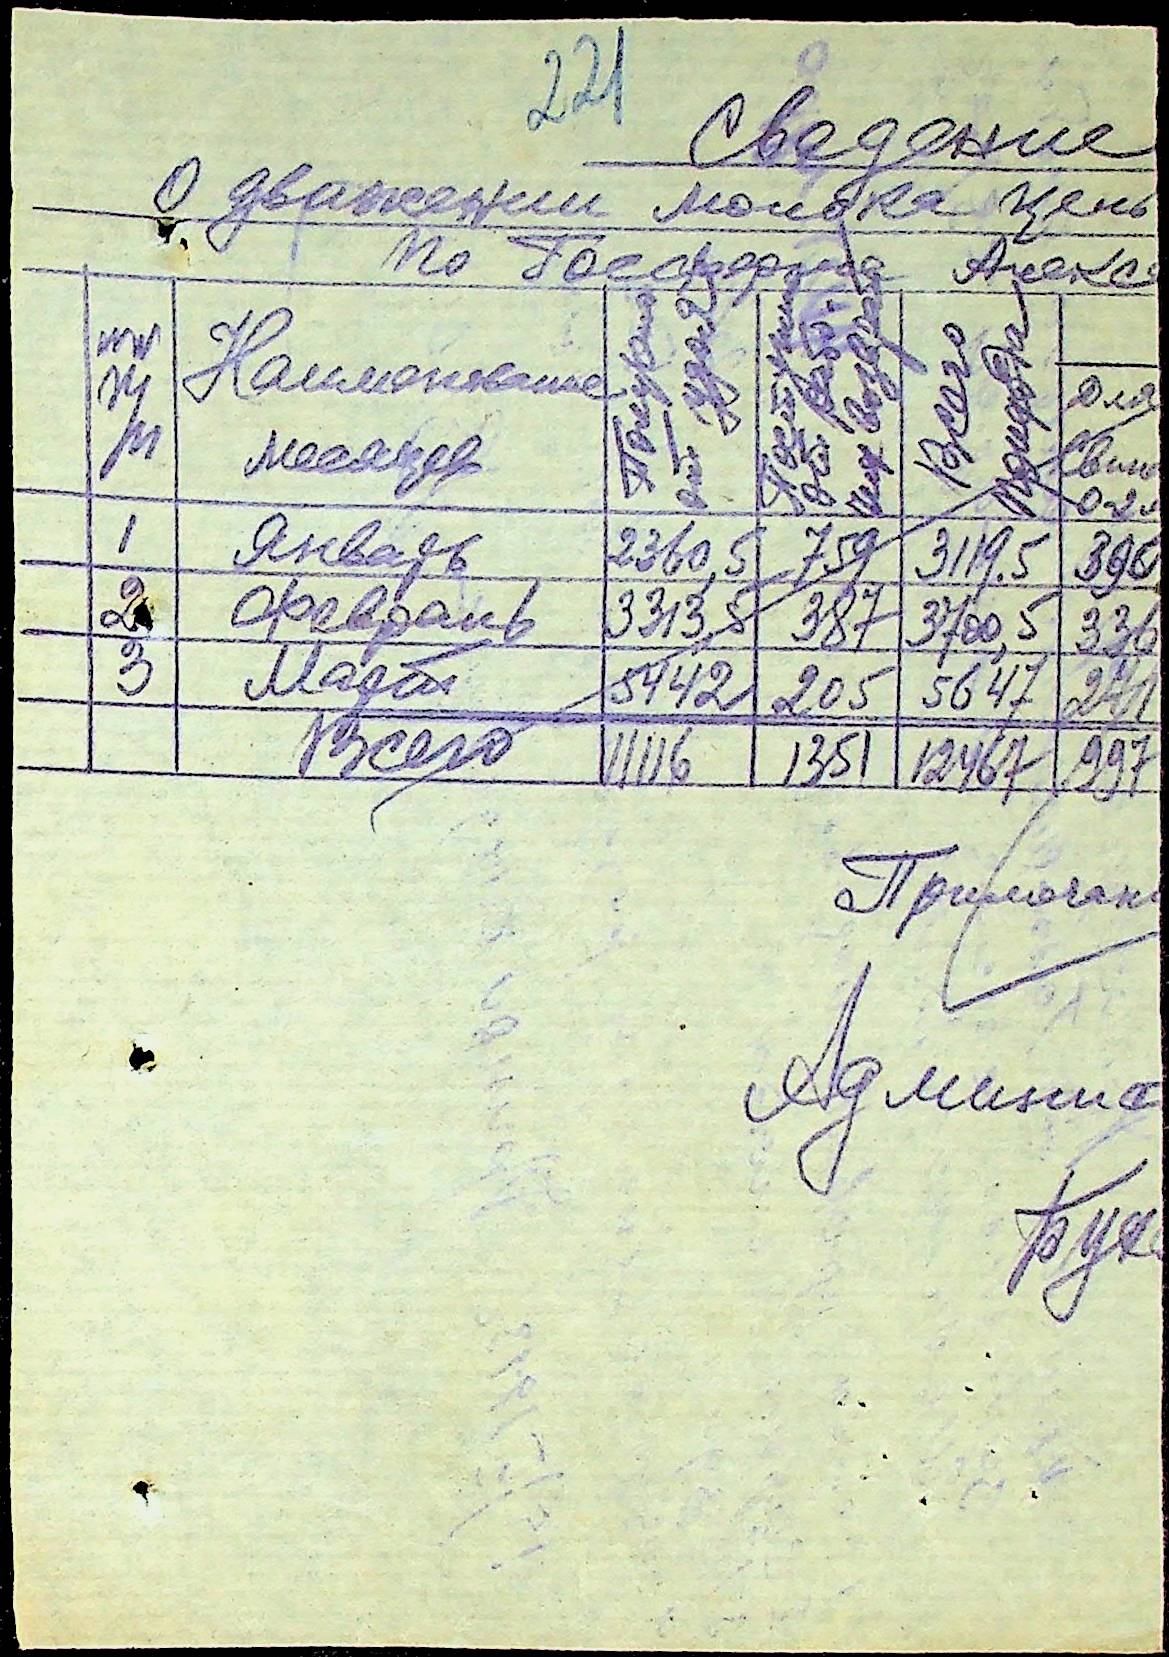 221
Сведение
О движении молока цень
По Госсферма Алекса
Наименование
месяцев
Получено
от удоя
Поступило
от
Всего
для
Свин
1 Январь 2360,5 759 3119.5 396
2 Февраль 3313,5 387 3700,5 336
3 Март 5442 205 5647 241
Всего 11116 1351 12467 997
Примечан
Админис
Бухг